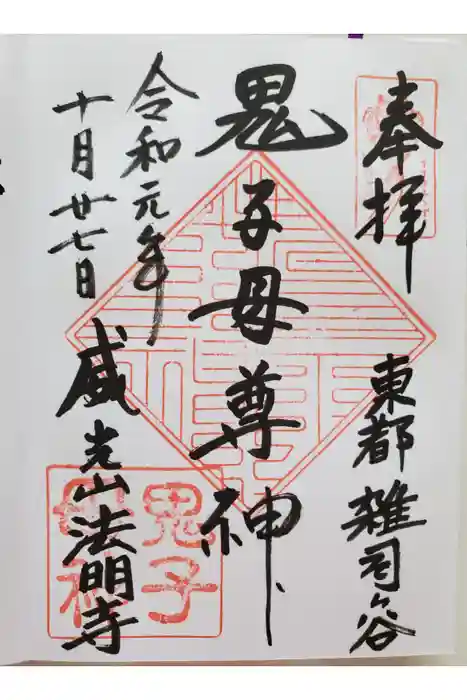 奉拝
東都 雑司ヶ谷
鬼子母尊神
令和元年
十月廿七日
威光山法明寺
鬼子
母神